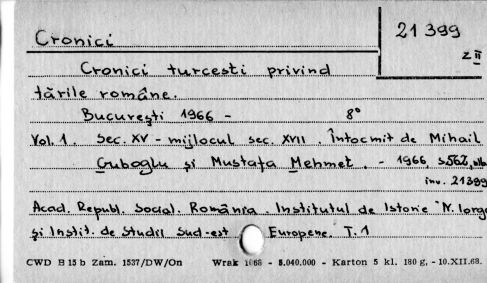 Cronici 21 399
Z II
Cronici turcesti privind
tările române.
București 1966 - 8°
Vol. 1. Sec. XV - mijlocul sec. XVII. Întocmit de Mihail
Guboglu și Mustafa Mehmet. - 1966,
inv. 21399
Acad. Republ. Social. România. Institutul de Istorie "N. Iorga
și Instit. de Studii Sud-est Europene. T. 1
CWD B 15 b Zam. 1537/DW/On Wrak 1968 - 5.040.000 - Karton 5 kl. 180 g. - 10.XII.68.